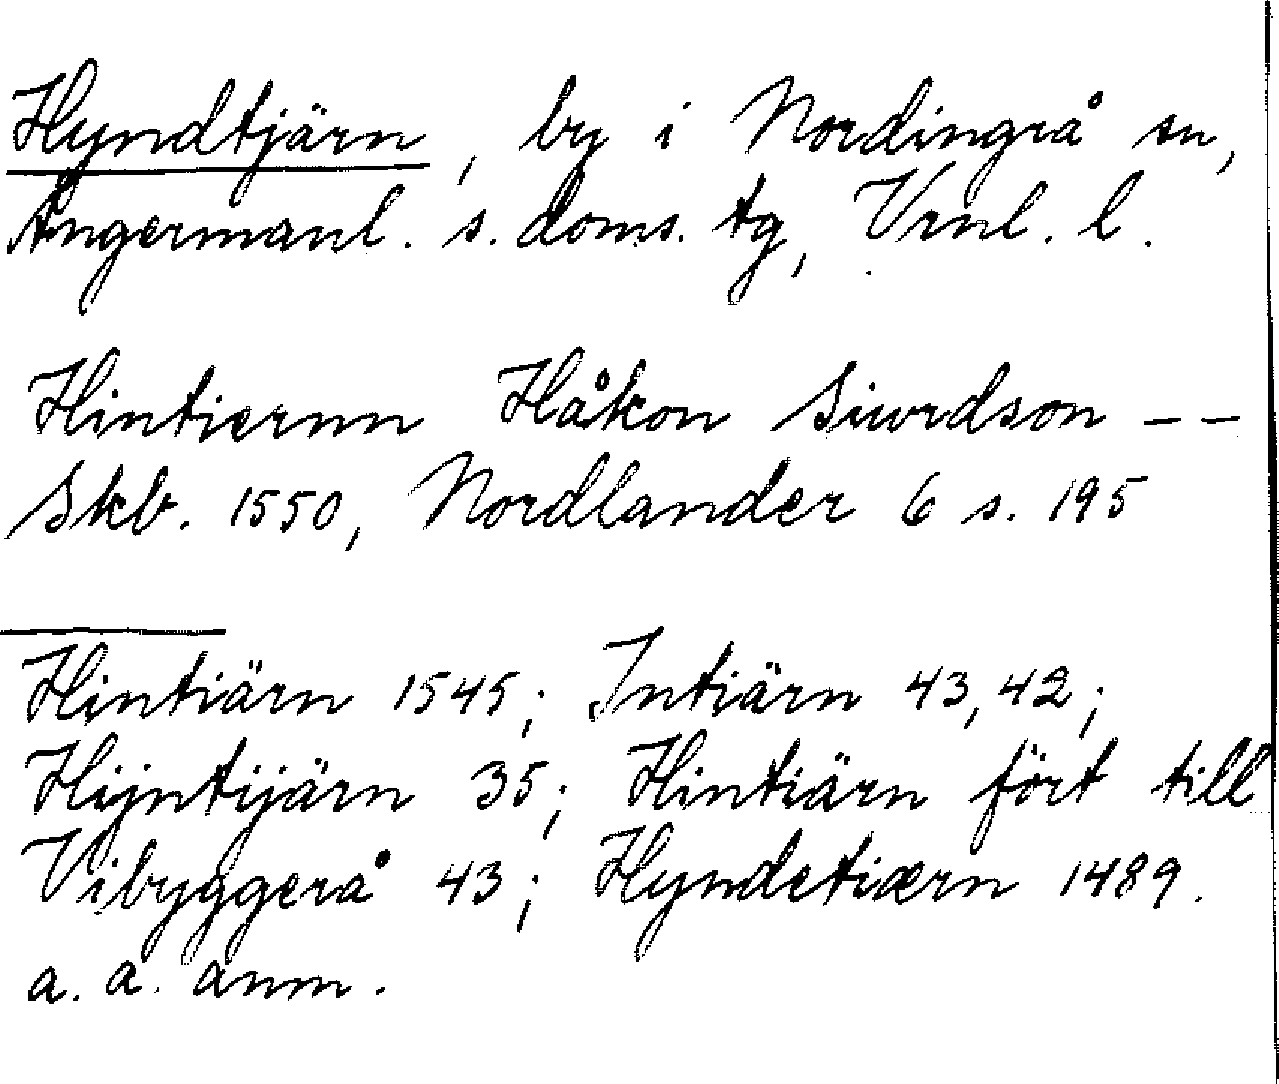 Hyndtjärn, by i Nordingrå sn,
Ångermanl. s. doms. tg, Vrnl. l.
Hintiernn Håkon Siwrdson – –
Skb. 1550, Nordlander 6 s. 195
Hintiärn 1545; Intiärn 43, 42;
Hijntijärn 35; Hintiärn fört till
Vibyggerå 43; Hyndetiærn 1489.
a. a. anm.